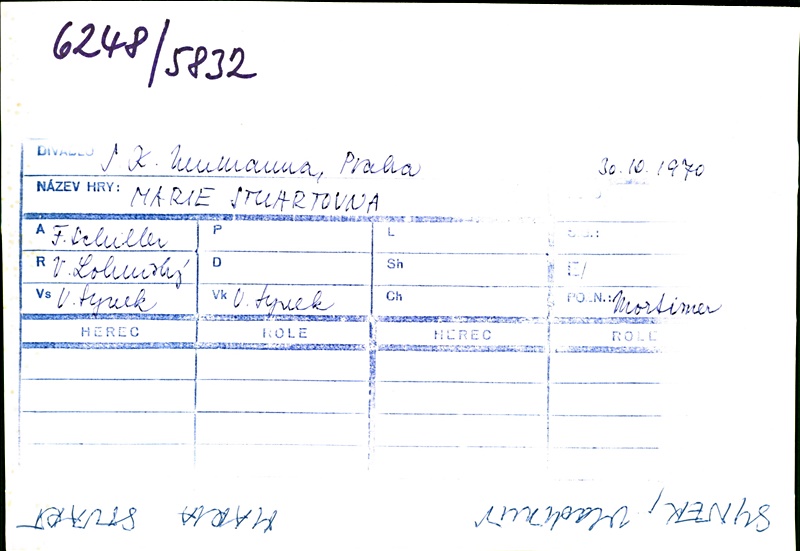 6248/5832
DIVADLO S. K. Neumanna, Praha 30.10.1970
NÁZEV HRY: MARIE STUARTOVNA
A F. Schiller P L
R V. Lohniský D Sh
Vs V. Synek Vk V. Synek Ch POZN.: Mortimer
HEREC ROLE HEREC ROLE
SYNEK, Vladimír MARIA STUART